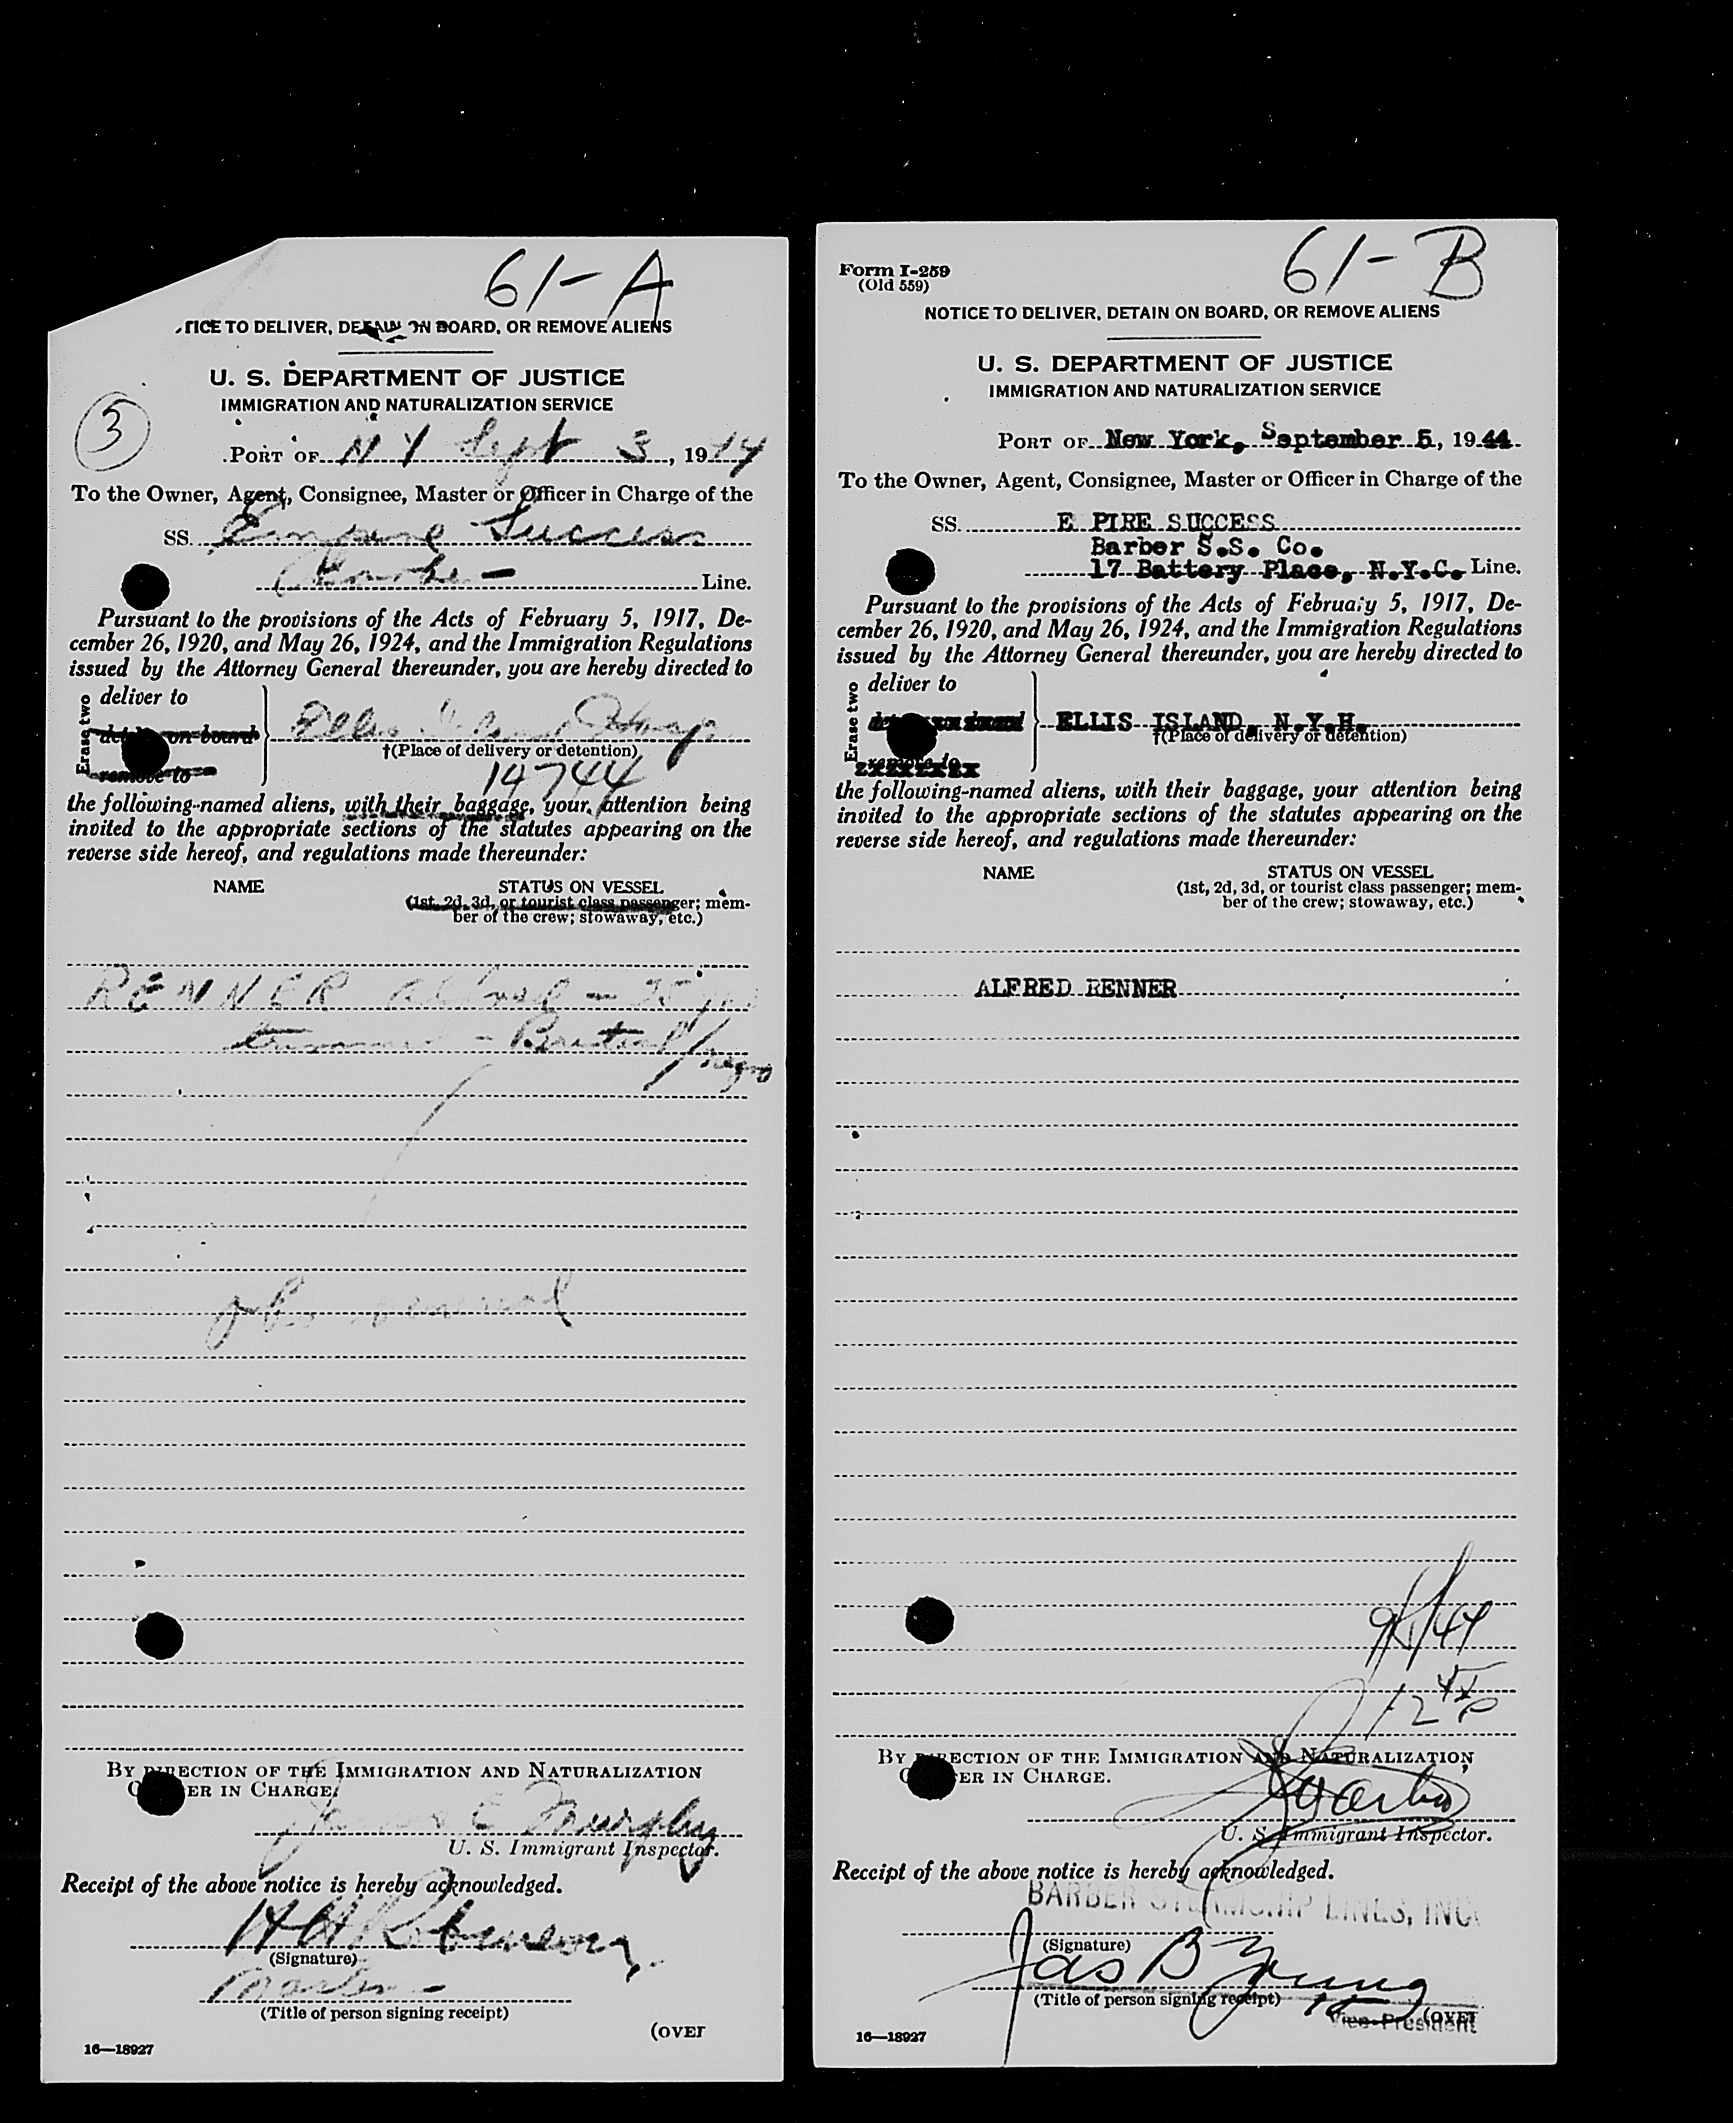 61-A
TICE TO DELIVER, DETAIN ON BOARD, OR REMOVE ALIENS
U. S. DEPARTMENT OF JUSTICE
IMMIGRATION AND NATURALIZATION SERVICE
3
PORT OF N Y Sept 3, 1944
To the Owner, Agent, Consignee, Master or Officer in Charge of the
SS. Empire Success
Line.
Pursuant to the provisions of the Acts of February 5, 1917, De-
cember 26, 1920, and May 26, 1924, and the Immigration Regulations
issued by the Attorney General thereunder, you are hereby directed to
Erase two
deliver to
detain on board
remove to
Ellis Island
†(Place of delivery or detention)
14744
the following-named aliens, with their baggage, your attention being
invited to the appropriate sections of the statutes appearing on the
reverse side hereof, and regulations made thereunder:
NAME STATUS ON VESSEL
(1st, 2d, 3d, or tourist class passenger; mem-
ber of the crew; stowaway, etc.)
RENNER Alfred - 35
trimmer - British/negro
BY DIRECTION OF THE IMMIGRATION AND NATURALIZATION
ER IN CHARGE.
James E Murphy
U. S. Immigrant Inspector.
Receipt of the above notice is hereby acknowledged.
H H Robinson
(Signature)
Master
(Title of person signing receipt)
(OVER
16—18927
61-B
Form I-259
(Old 559)
NOTICE TO DELIVER, DETAIN ON BOARD, OR REMOVE ALIENS
U. S. DEPARTMENT OF JUSTICE
IMMIGRATION AND NATURALIZATION SERVICE
PORT OF New York, September 5, 1944
To the Owner, Agent, Consignee, Master or Officer in Charge of the
SS. E PIRE SUCCESS
Barber S.S. Co.
17 Battery Place, N.Y.C. Line.
Pursuant to the provisions of the Acts of February 5, 1917, De-
cember 26, 1920, and May 26, 1924, and the Immigration Regulations
issued by the Attorney General thereunder, you are hereby directed to
Erase two
deliver to
remove to
ELLIS ISLAND, N.Y.H.
†(Place of delivery or detention)
the following-named aliens, with their baggage, your attention being
invited to the appropriate sections of the statutes appearing on the
reverse side hereof, and regulations made thereunder:
NAME STATUS ON VESSEL
(1st, 2d, 3d, or tourist class passenger; mem-
ber of the crew; stowaway, etc.)
ALFRED RENNER
12 45 P
BY DIRECTION OF THE IMMIGRATION AND NATURALIZATION
ER IN CHARGE.
U. S. Immigrant Inspector.
Receipt of the above notice is hereby acknowledged.
BARBER STEAMSHIP LINES, INC.
(Signature)
Jas B Young
(Title of person signing receipt)
Vice-President
(OVER
16—18927